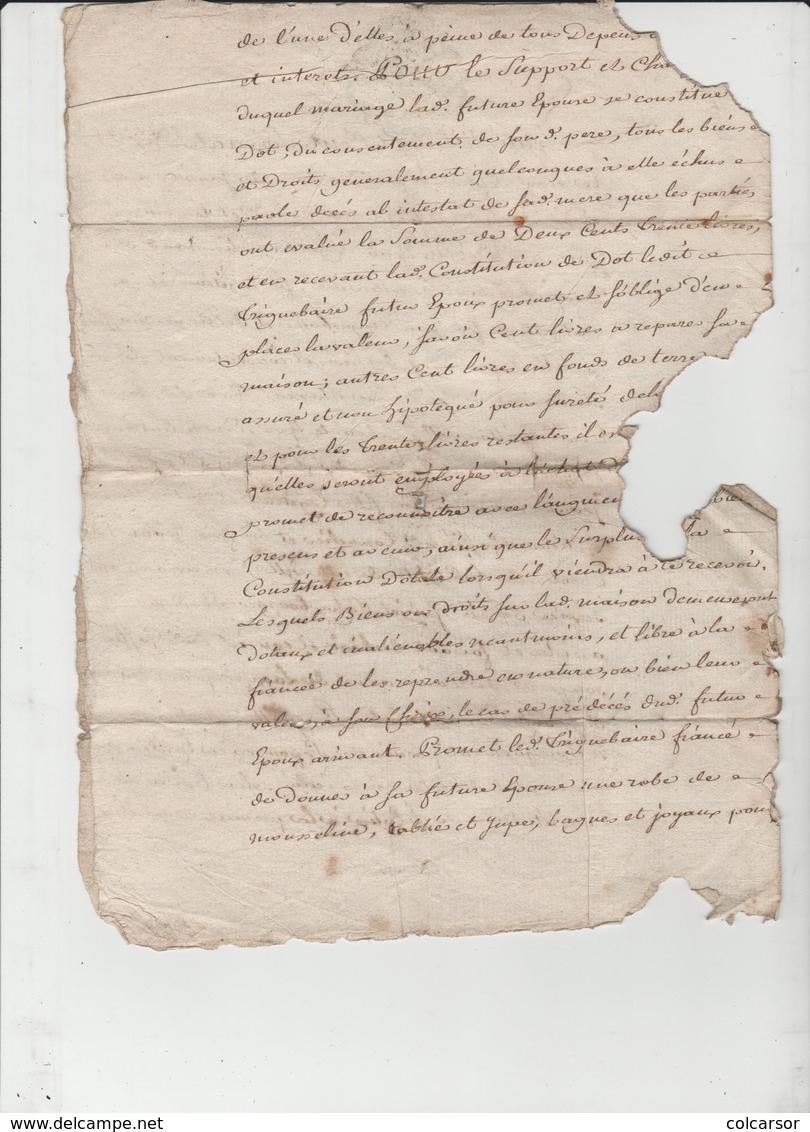 de l'une d'elles à peine de tous Depens
et interets. Pour le Support et Cha
duquel mariage lad. future Epouse se constitüe
Dot, du consentement de son d. pere, tous les biens
et Droits generalement quelconques à elle échus
par le décés ab intestat de sad. mere que les parties
ont evalué la Somme de Deux Cents trente livres,
et en recevant lad. Constitution de Dot ledit
Triquebaire futur Epoux promet et s'oblige d'en
placer la valeur, savoir Cent livres a reparer sa
maison; autres Cent livres en fonds de terre
assuré et non hipotequé pour sureté de
et pour les trente livres restantes il es
qu'elles seront employées à l'achat
promet de reconnoitre avec l'augmen bie
presens et avenir, ainsi que le Surplus la
Constitution Dotale lorsqu'il viendra à le recevoir.
Lesquels Biens ou droits sur lad. maison demeureront
dotaux et inalienables neantmoins, et libre à la
fiancée de les reprendre en nature, ou bien leur
valeur, à son Choix, le cas de pré décés dud. futur
Epoux arivant. Promet led. Triquebaire fiancé
de donner à sa future Epouse une robe de
mousseline, tablié et jupes, bagues et joyaux pour
colcarsor